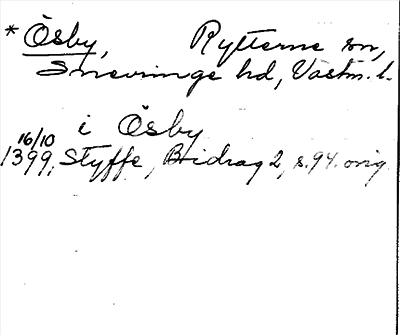 * Ösby, Rytterne sn,
Snevringe hd, Västm. l.
i Ösby
16/10
1399, Styffe, Bidrag 2, s. 94. orig.